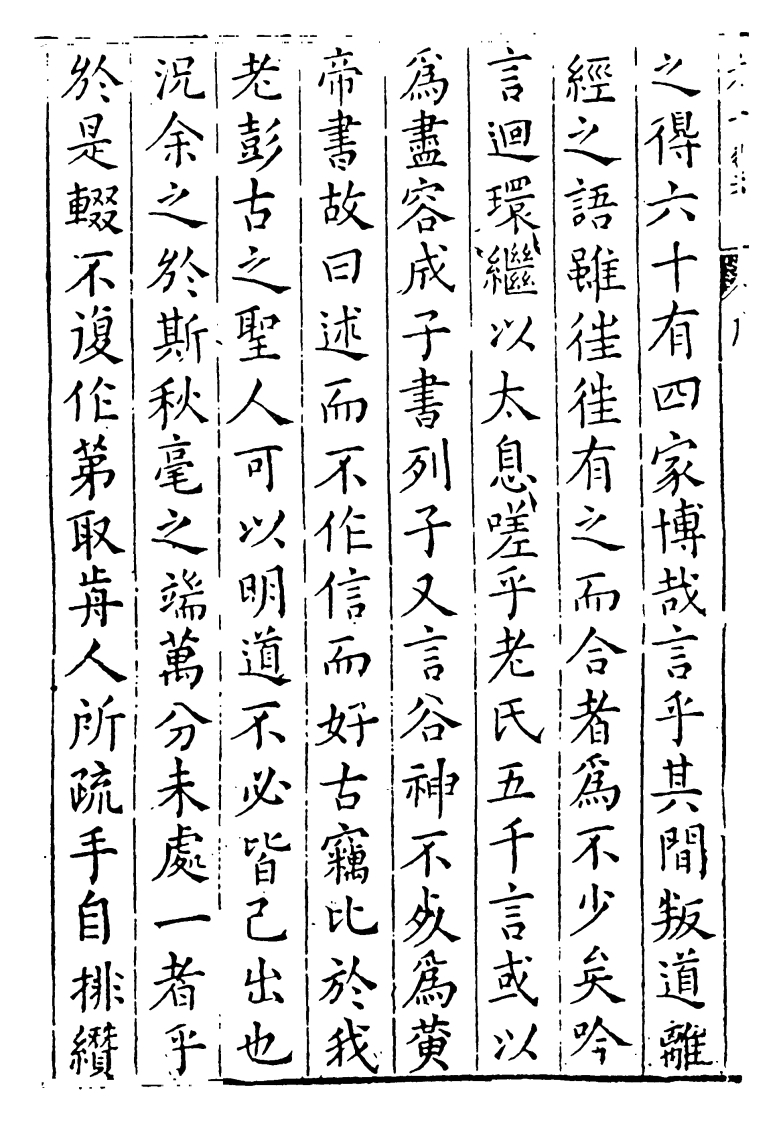 之得六十有四家博哉言乎其間叛道離
經之語雖徃徃有之而合者爲不少矣吟
言迴環繼以太息嗟乎老氏五千言或以
爲盡容成子書列子又言谷神不死爲黄
帝書故曰述而不作信而好古竊比於我
老彭古之聖人可以明道不必皆己出也
況余之於斯秋毫之端萬分未處一者乎
於是輟不復作第取前人所疏手自排纘